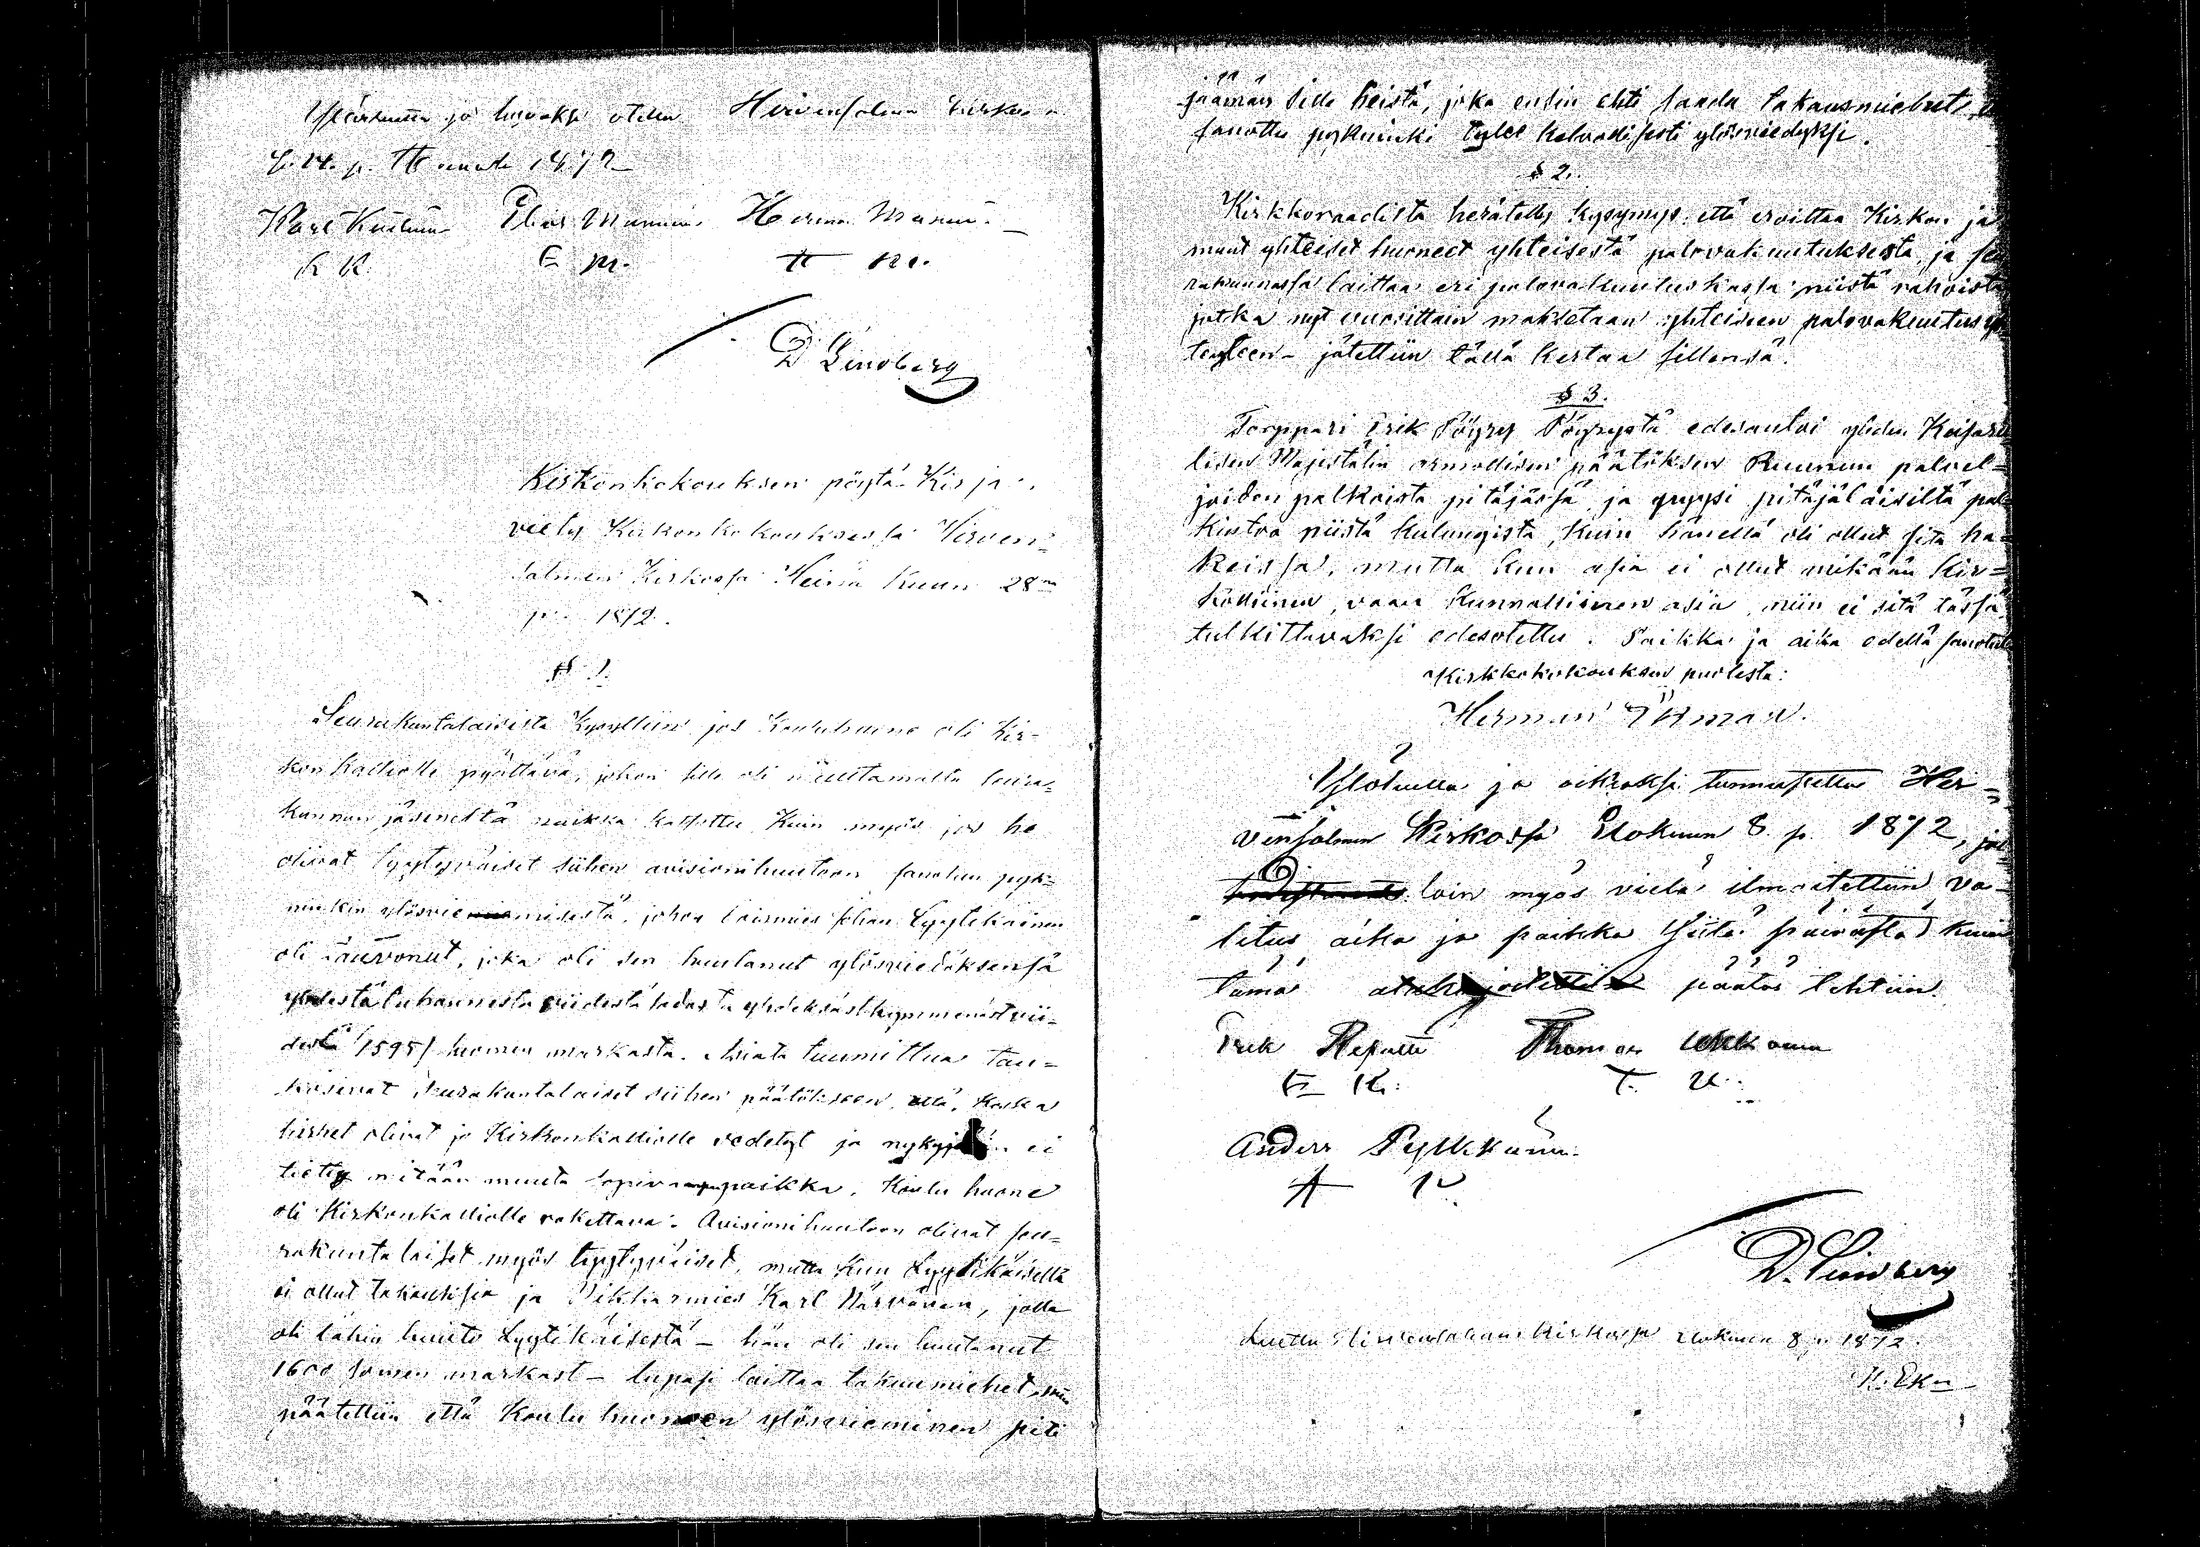 Ylösluettu ja hyväksi otettu Hirvensalmen Kirkossa
p. 1872
Karl Elias Manninen Herman Manninen
K K. E M. H M.
D Lindberg
Kirkonkokouksen pöytä-Kirja,
viety Kirkonkokouksessa Hirven=
salmen Kirkossa Heinä Kuun 28
p. 1872.
§ 1.
Seurakuntalaisista kysyttiin jos Kouluhuone oli Kir=
konkalliolle pyättävä, johon sille oli muutamalta seura=
kunnan jäseneltä paikka katsottu, Kuin myös jos he
olivat tyytyväiset siihen avisionihuutoon sanotun pyk=
ninkin ylösviemisestä, johon laismies Johan Lyytikäinen
oli ruvennut, joka oli sen huutanut ylösviedäksensä
yhdestä tuhannesta viidestä sadasta yhdeksästkymmenestvii=
destä /1595/ Suomen markasta. Asiata tuumittua tau=
kosivat seurakuntalaiset siihen päätökseen, että, koska
hirret olivat jo Kirkonkalliolle vedetyt ja nykyjään ei
tietty mitään muuta sopivampaa paikka, Koulu huone
oli Kirkonkalliolle rakettava. Avisionihuutoon olivat seu=
rakuntalaiset myös tyytyväiset, mutta kun Lyytikäisellä
ei ollut takauksia ja Karl Närvänen, jolla
oli lähin huuto Lyytikäisestä – hän oli sen huutanut
1600 Suomen markast – lupasi laittaa takuumiehet, niin
päätettiin että Koulu huoneen ylösvieminen piti
jäämän sille heistä, joka ensin ehti saada takausmiehet,
sanottu pykninki tulee kelvollisesti ylösviedyksi.
§ 2.
Kirkkoraadista herätetty kysymys, että eroittaa Kirkon ja
muut yhteiset huoneet yhteisestä palovakuutuksesta, ja seu
rakunnassa laittaa eri palovakuutuskassa niistä rahoista
jotka nyt vuosittain maksetaan yhteiseen palovakuutus yh
teyteen – jätettiin tällä kertaa sillensä.
§ 3.
Torppari Erik Pöyry Pöyrystä edesantoi yhden Keisaril
lisen Majestätin armollisen päätöksen Ruunun palvel=
joiden palkoista pitäjässä ja pyysi pitäjäläisiltä pal
kintoa niistä kulungista, kuin hänellä oli ollut sitä ha=
keissa, mutta kun asia ei ollut mikään kir=
kollinen, vaan kunnallinen asia, niin ei sitä tässä
tutkittavaksi edesotettu. Paikka ja aika edellä sanotut
Kirkkokokouksen puolesta:
Herman Öhman.
Ylösluettu ja oikiaksi tunnustettu Hir=
vensalmen Kirkossa Elokuun 8 p. 1872, jol=
loin myös vielä ilmoitettiin va=
litus aika ja paikka siitä päivästä kuin
tämä päätös tehtiin.
Erik Repatti Thomas Ukkonen
E R. T. U.
Anders Pylkkänen
A P.
D. Lindberg
Luettu Hirvensalmen Kirkossa Elokuun 8 p 1872.